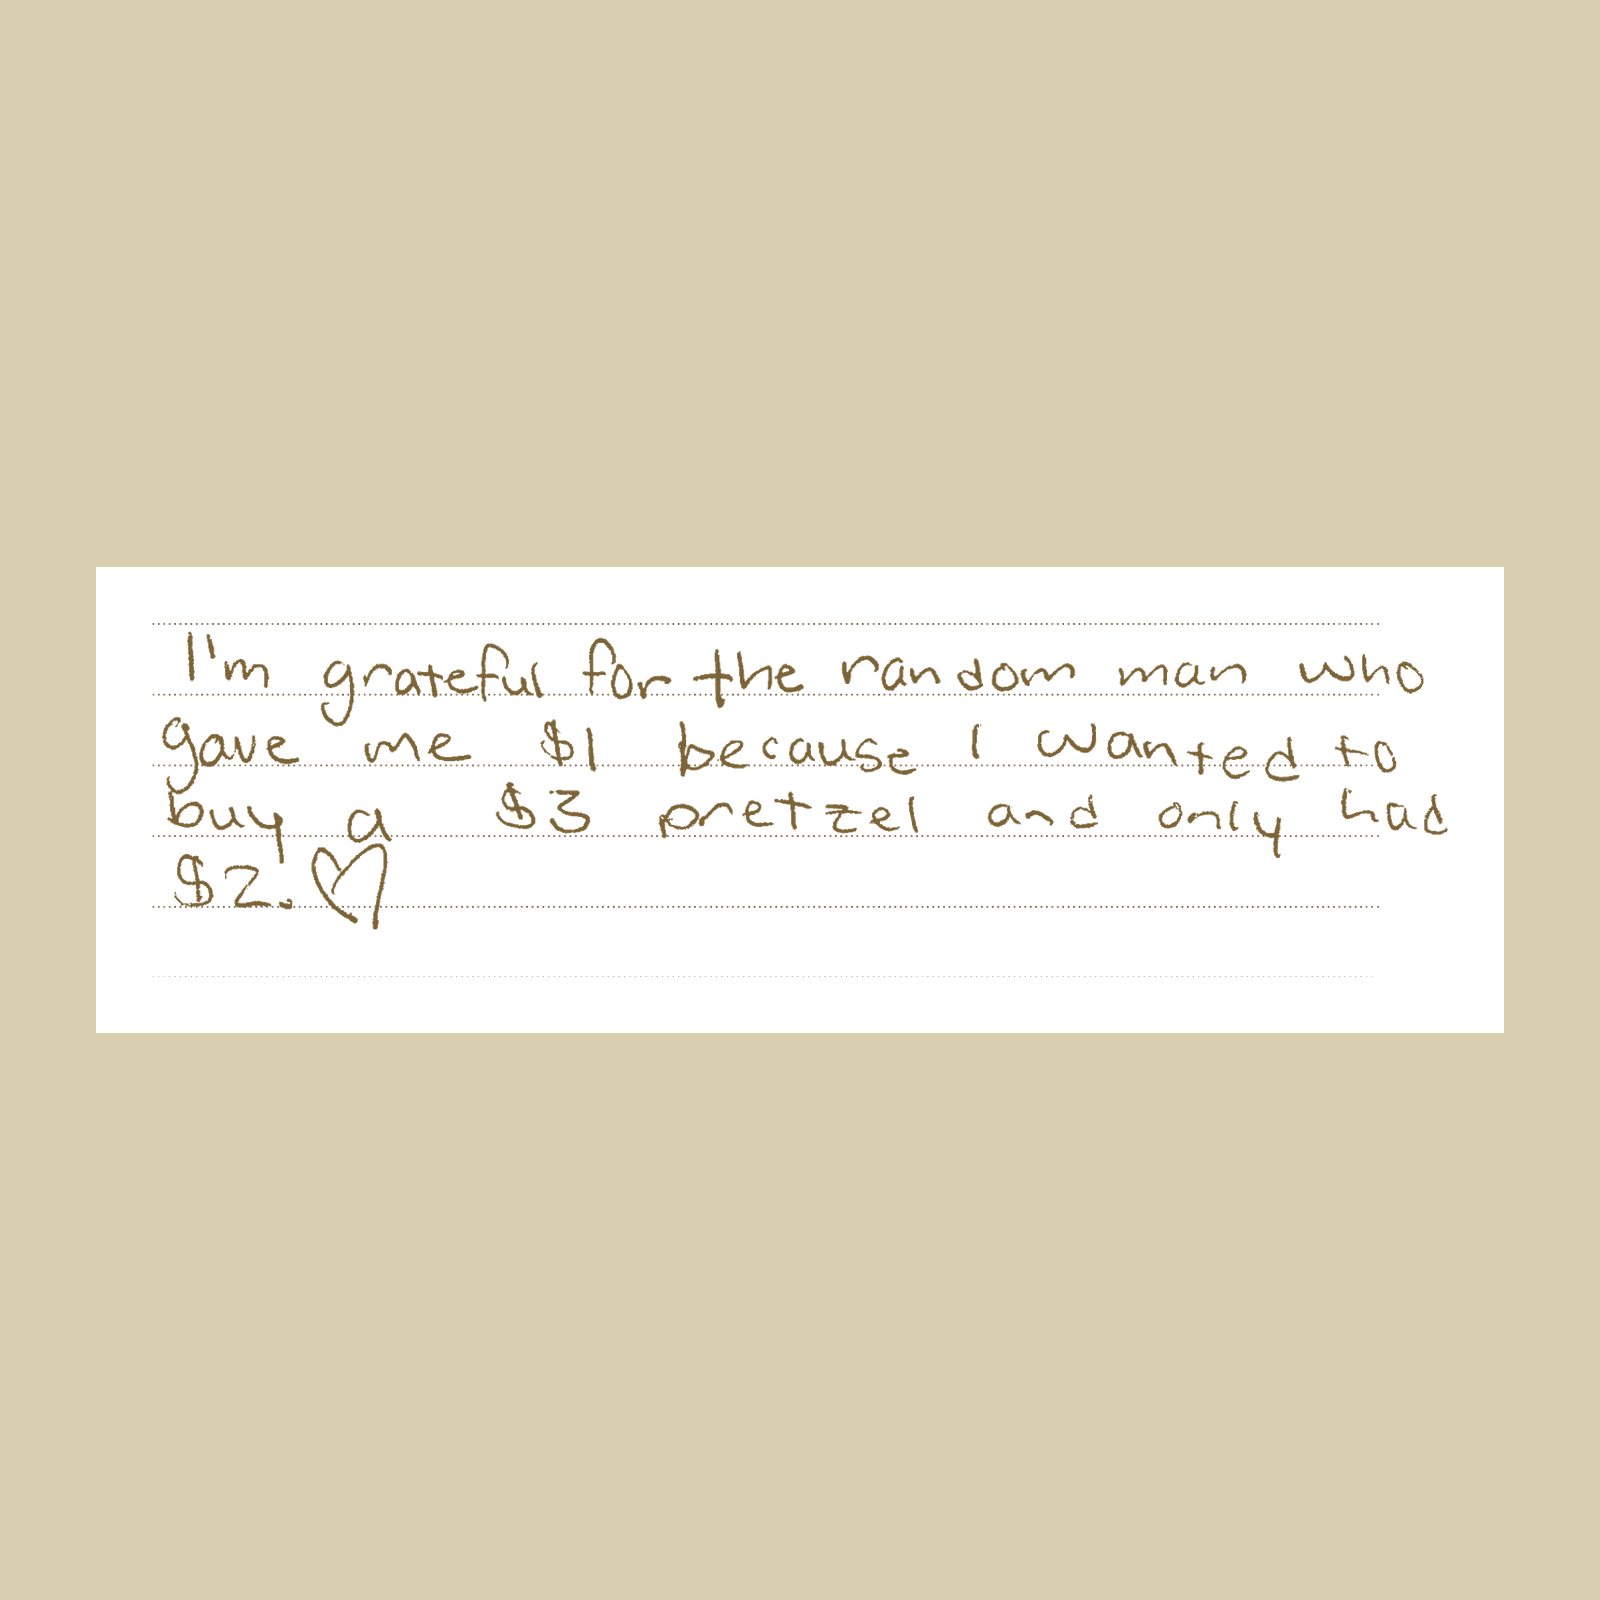 I'm grateful for the random man who
gave me $1 because I wanted to
buy a $3 pretzel and only had
$2.♡